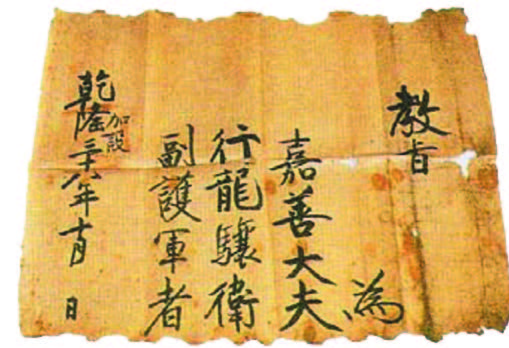 教旨
為
嘉善大夫
行龍驤衛
副護軍者
乾隆三十八年十月 日
加設